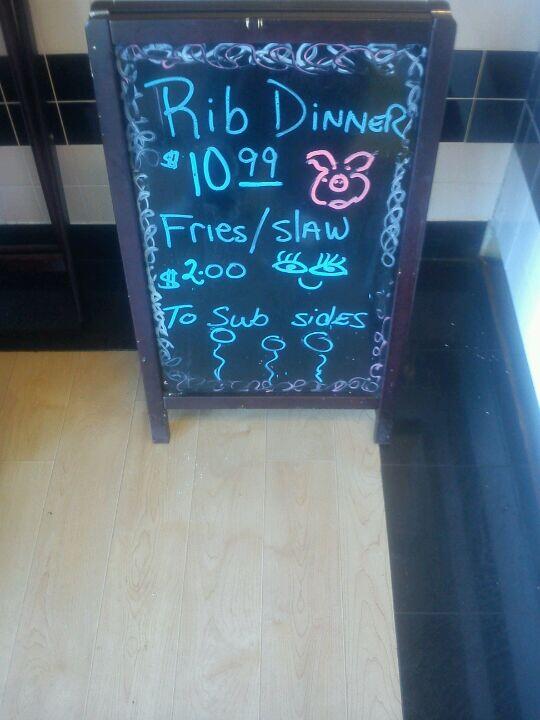 Rib Dinner
$10.99
Fries/slaw
$2.00
To Sub sides